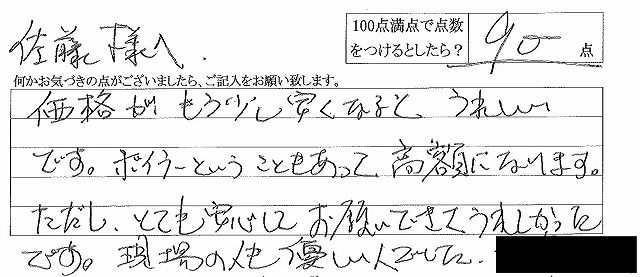 佐藤様へ.
100点満点で点数
をつけるとしたら? 90 点
何かお気づきの点がございましたら、ご記入をお願い致します。
価格がもう少し安くなると、うれしい
です。ボイラーということもあって、高額になります。
ただし、とても安心してお願いできてうれしかった
です。現場の人も優しい人でした.